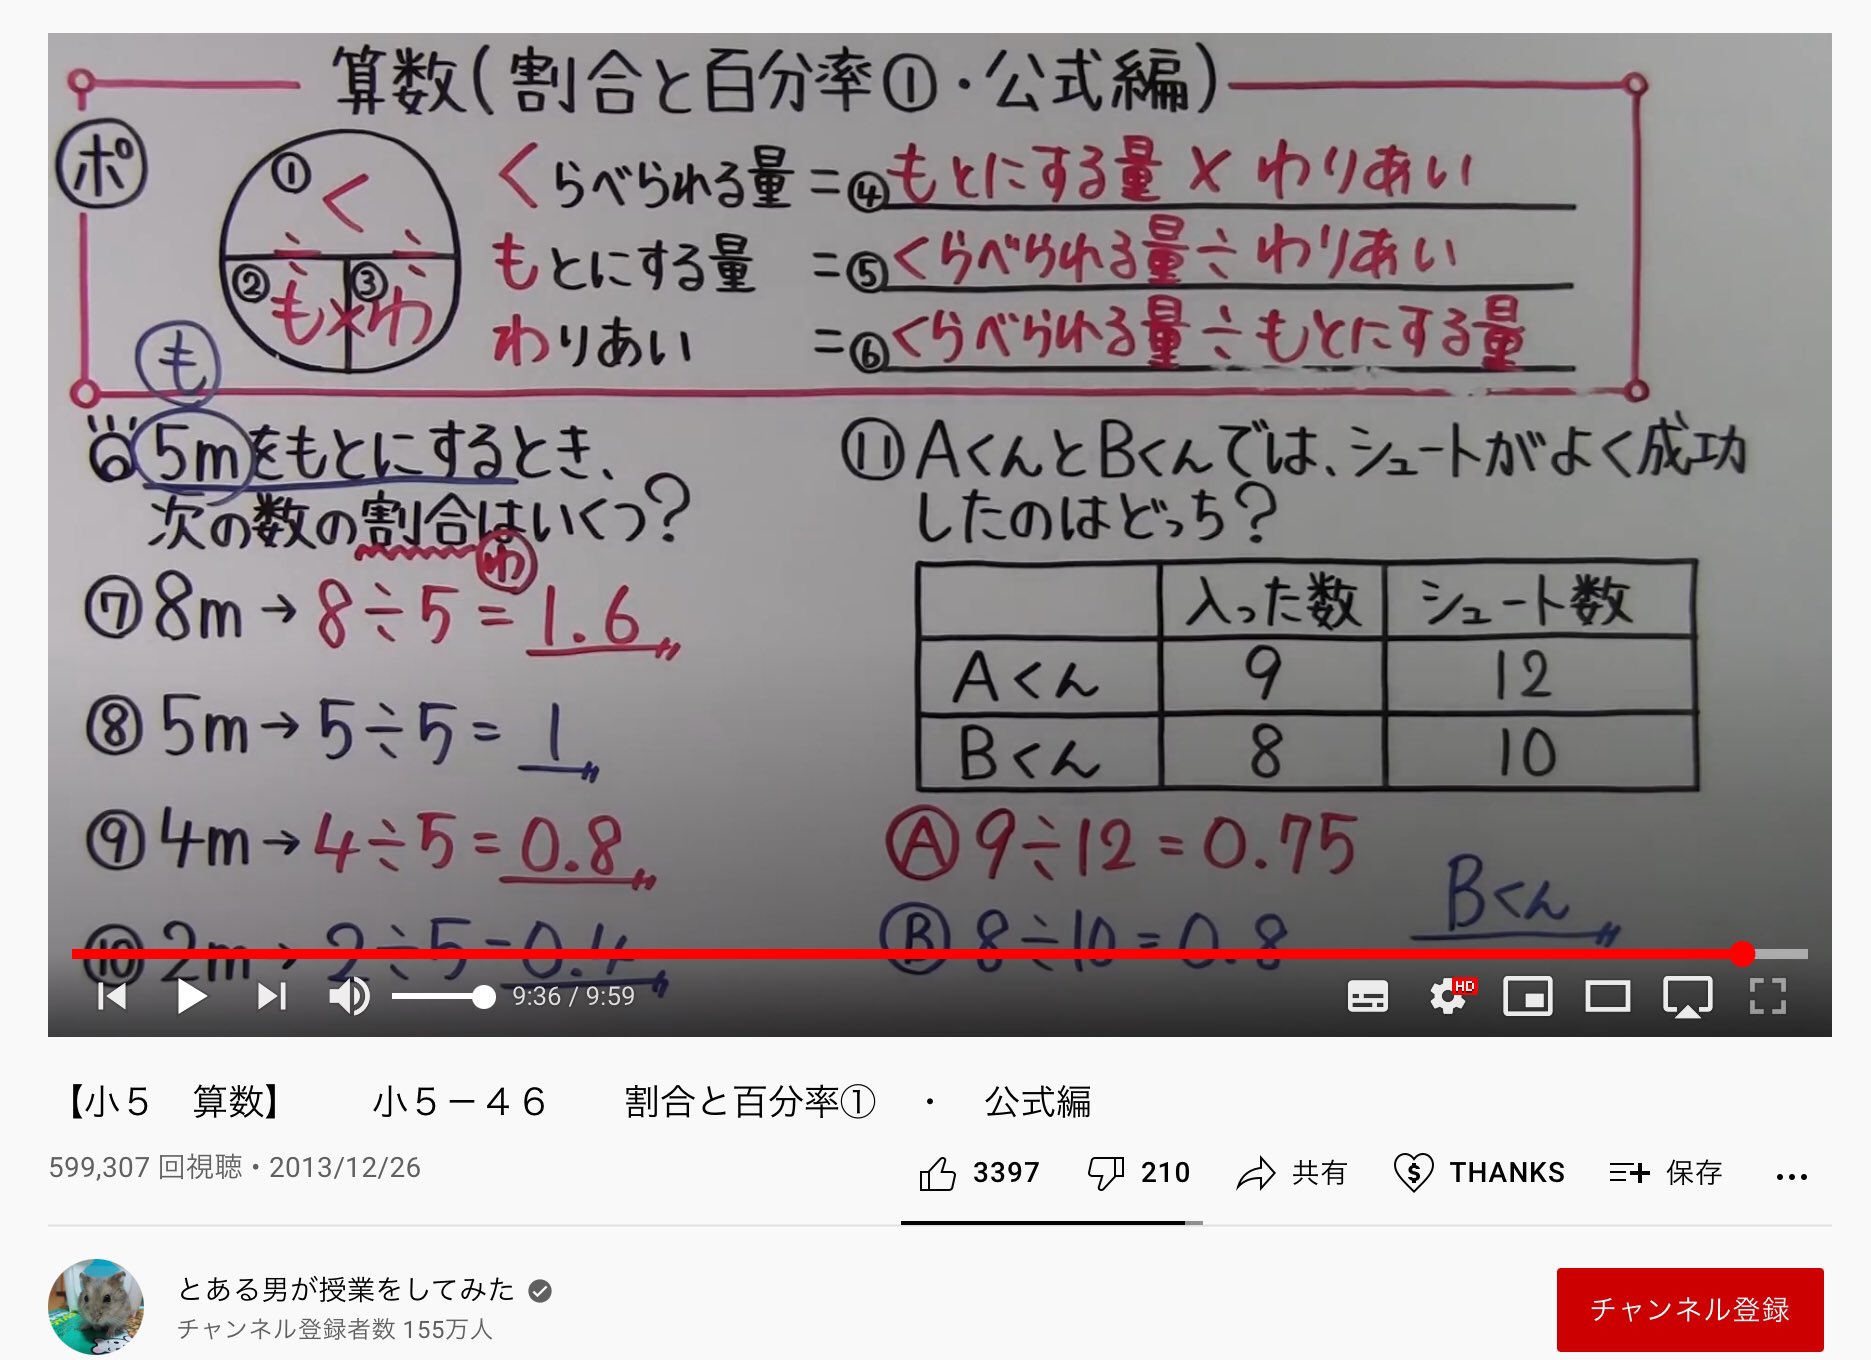 算数(割合と百分率①・公式編)
ポ
① く
÷ ÷
② も × ③ わ
くらべられる量 = ④ もとにする量 × わりあい
もとにする量 = ⑤ くらべられる量 ÷ わりあい
わりあい = ⑥ くらべられる量 ÷ もとにする量
も
5mをもとにするとき、
次の数の割合はいくつ?
わ
⑦ 8m → 8÷5 = 1.6
⑧ 5m → 5÷5 = 1
⑨ 4m → 4÷5 = 0.8
⑩ 2m → 2÷5 = 0.4
⑪ AくんとBくんでは、シュートがよく成功
したのはどっち?
入った数 シュート数
Aくん 9 12
Bくん 8 10
Ⓐ 9÷12 = 0.75
Ⓑ 8÷10 = 0.8
Bくん
9:36 / 9:59
HD
【小5 算数】 小5－46 割合と百分率① ・ 公式編
599,307 回視聴・2013/12/26
3397 210 共有 THANKS 保存 …
とある男が授業をしてみた
チャンネル登録者数 155万人
チャンネル登録